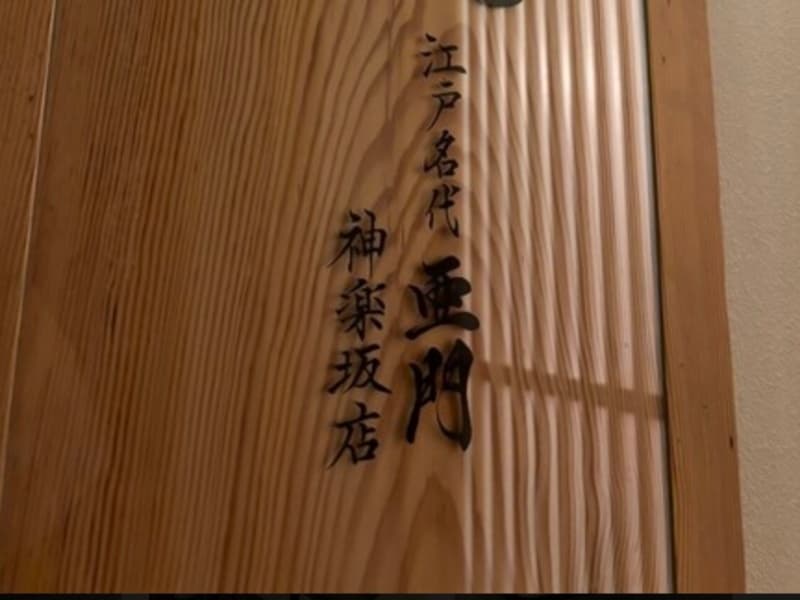 江戸名代 亜門
神楽坂店